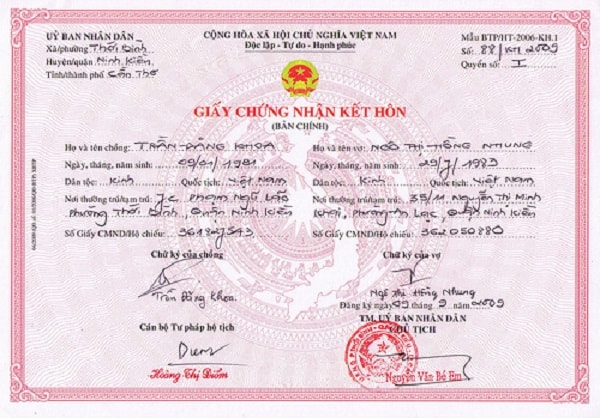 ỦY BAN NHÂN DÂN
Xã/phường Thới Bình
Huyện/quận Ninh Kiều
Tỉnh/thành phố Cần Thơ
CỘNG HÒA XÃ HỘI CHỦ NGHĨA VIỆT NAM
Độc lập - Tự do - Hạnh phúc
Mẫu BTP/HT-2006-KH.1
Số: 88/KH 2009
Quyển số: I
GIẤY CHỨNG NHẬN KẾT HÔN
(BẢN CHÍNH)
Họ và tên chồng: TRẦN ĐĂNG KHOA
Ngày, tháng, năm sinh: 09/01/1981
Dân tộc: Kinh Quốc tịch: Việt Nam
Nơi thường trú/tạm trú: 7c Phạm Ngũ Lão
Phường Thới Bình, Quận Ninh Kiều
Số Giấy CMND/Hộ chiếu: 361827343
Họ và tên vợ: NGÔ THỊ HỒNG NHUNG
Ngày, tháng, năm sinh: 29/7/1983
Dân tộc: Kinh Quốc tịch: Việt Nam
Nơi thường trú/tạm trú: 35/11 Nguyễn Thị Minh
Khai, Phường An Lạc, Quận Ninh Kiều
Số Giấy CMND/Hộ chiếu: 362050880
Chữ ký của chồng
Trần Đăng Khoa
Chữ ký của vợ
Ngô Thị Hồng Nhung
Đăng ký ngày 09 tháng 2 năm 2009
Cán bộ Tư pháp hộ tịch
Hoàng Thị Diễm
TM. ỦY BAN NHÂN DÂN
CHỦ TỊCH
Nguyễn Văn Bé Em